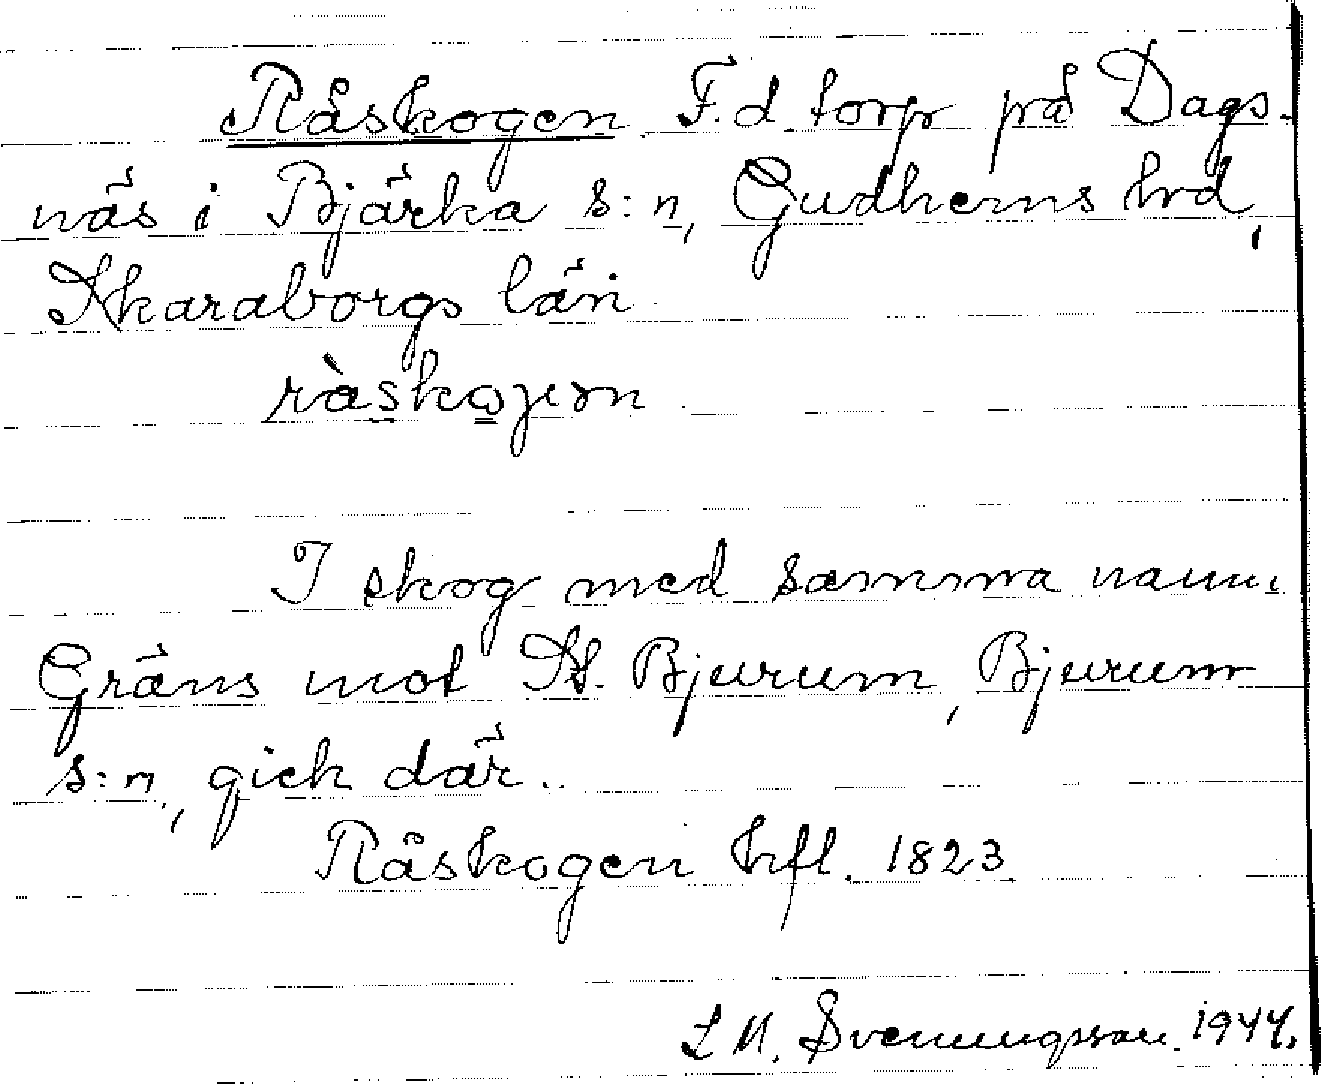 Råskogen. F.d. torp på Dags-
näs i Bjärka s:n, Gudhems hd,
Skaraborgs län.
ràskojen
I skog med samma namn.
Gräns mot St. Bjurum, Bjurum
s:n, gick där.
Råskogen hfl. 1823.
L M. Svenungsson. 1944.